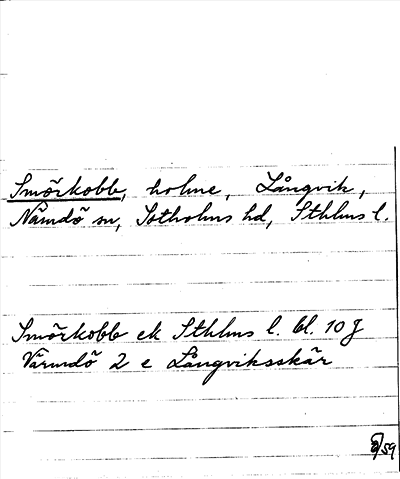 Smörkobb, holme, Långvik,
Nämdö sn, Sotholms hd, Sthlms l.
Smörkobb ek Sthlms l. bl. 10 J
Värmdö 2 e Långviksskär
/59